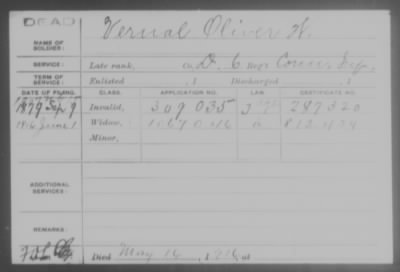 DEAD
NAME OF SOLDIER: Vernal Oliver W.
SERVICE: Late rank, Co. D. 6 Reg't Conn. Inf.
TERM OF SERVICE: Enlisted , 1 Discharged , 1
DATE OF FILING. CLASS. APPLICATION NO. LAW. CERTIFICATE NO.
1879 Sep 9 Invalid, 309 035 287 320
1916 June 1 Widow, 812 434
Minor,
ADDITIONAL SERVICES:
REMARKS:
Died May 16, 1916 at